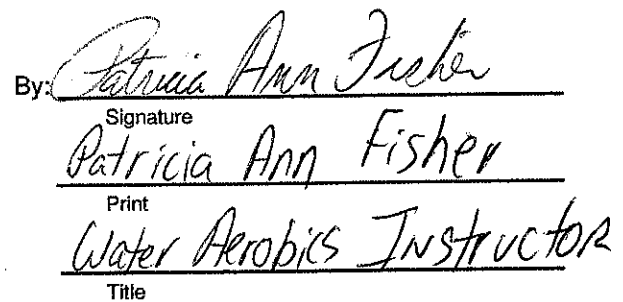 By: Patricia Ann Fisher
Signature
Patricia Ann Fisher
Print
Water Aerobics Instructor
Title